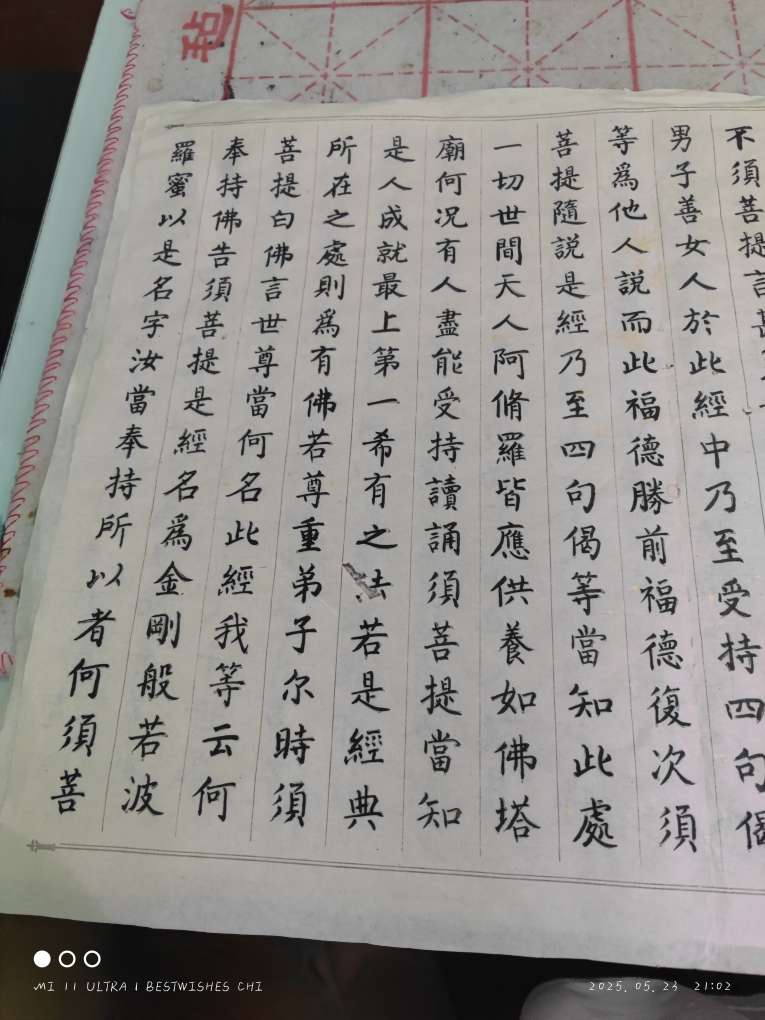 不須菩提言甚
男子善女人於此經中乃至受持四句偈
等爲他人說而此福德勝前福德復次須
菩提隨說是經乃至四句偈等當知此處
一切世間天人阿脩羅皆應供養如佛塔
廟何況有人盡能受持讀誦須菩提當知
是人成就最上第一希有之法若是經典
所在之處則爲有佛若尊重弟子尔時須
菩提白佛言世尊當何名此經我等云何
奉持佛告須菩提是經名爲金剛般若波
羅蜜以是名字汝當奉持所以者何須菩
毡
MI 11 ULTRA | BESTWISHES CHI
2025.05.23 21:02